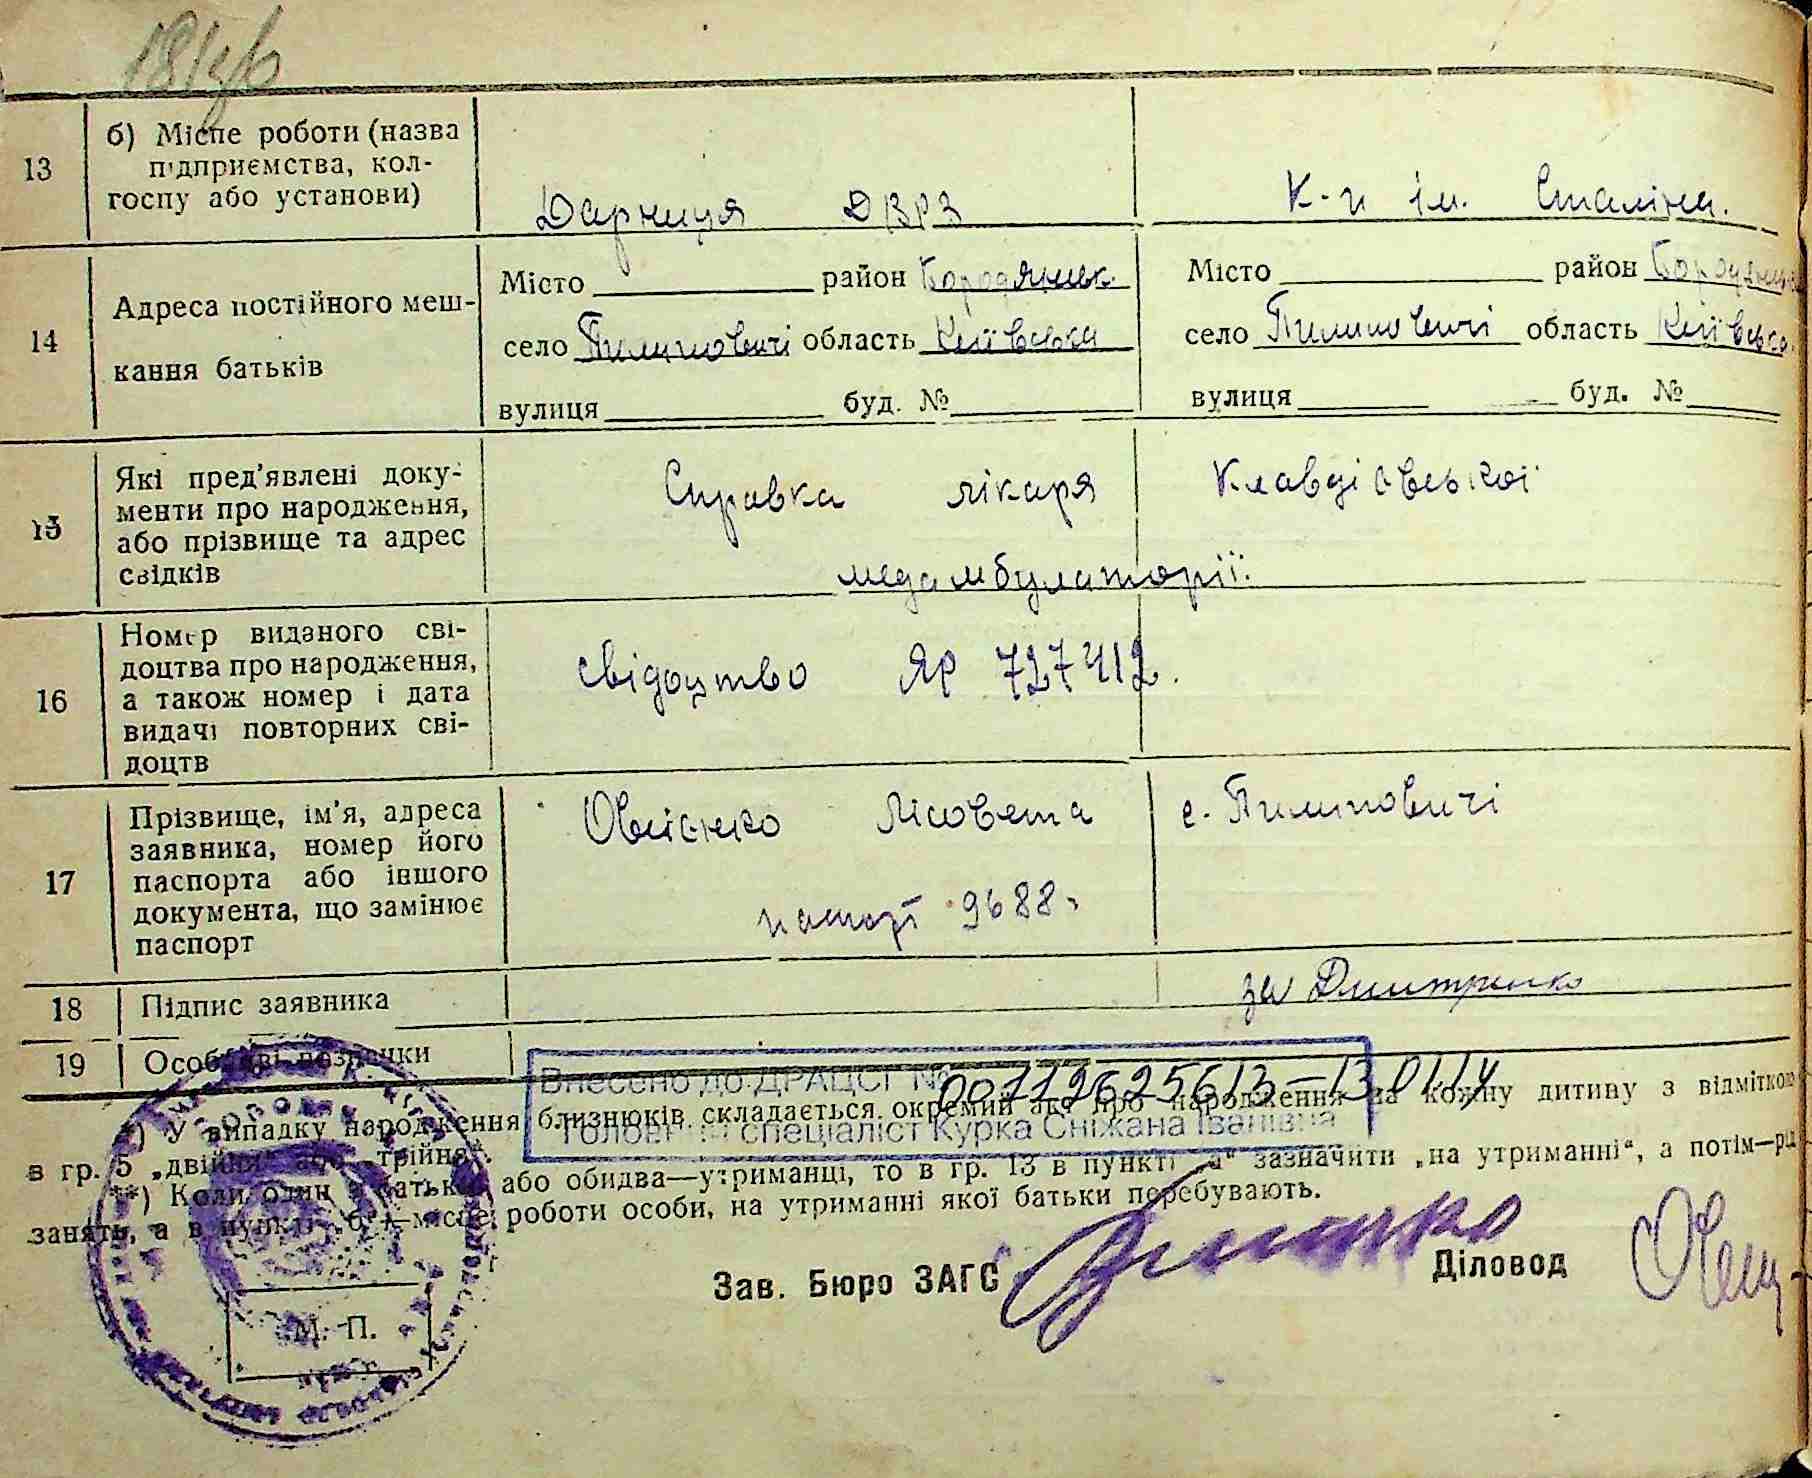 13
б) Місце роботи (назва
підприємства, кол-
госпу або установи)
Дарниця ДВРЗ
К-п ім. Сталіна.
14
Адреса постійного меш-
кання батьків
Місто район Бородянськ.
село Пилиповичі область Київська
вулиця буд. №
Місто район Бородянськ
село Пилиповичі область Київська.
вулиця буд. №
15
Які пред'явлені доку-
менти про народження,
або прізвище та адрес
свідків
Справка лікаря Клавдіївської
медамбулаторії.
16
Номер виданого сві-
доцтва про народження,
а також номер і дата
видачі повторних сві-
доцтв
свідоцтво ЯР 727412.
17
Прізвище, ім'я, адреса
заявника, номер його
паспорта або іншого
документа, що замінює
паспорт
Овсієнко Лісовета с. Пилиповичі
паспорт 9688.
18
Підпис заявника
за Дмитренко
19
Особливі позначки
Внесено до ДРАЦСГ № 00712625613-13.01.14
Головний спеціаліст Курка Сніжана Іванівна
*) У випадку народження близнюків складається окремий акт про народження на кожну дитину з відміткою
в гр. 5 „двійня" або „трійня".
**) Коли один з батьків або обидва—утриманці, то в гр. 13 в пункті „а" зазначити „на утриманні", а потім—рід
занять, а в пункті „б"—місце роботи особи, на утриманні якої батьки перебувають.
Зав. Бюро ЗАГС
Діловод
М. П.